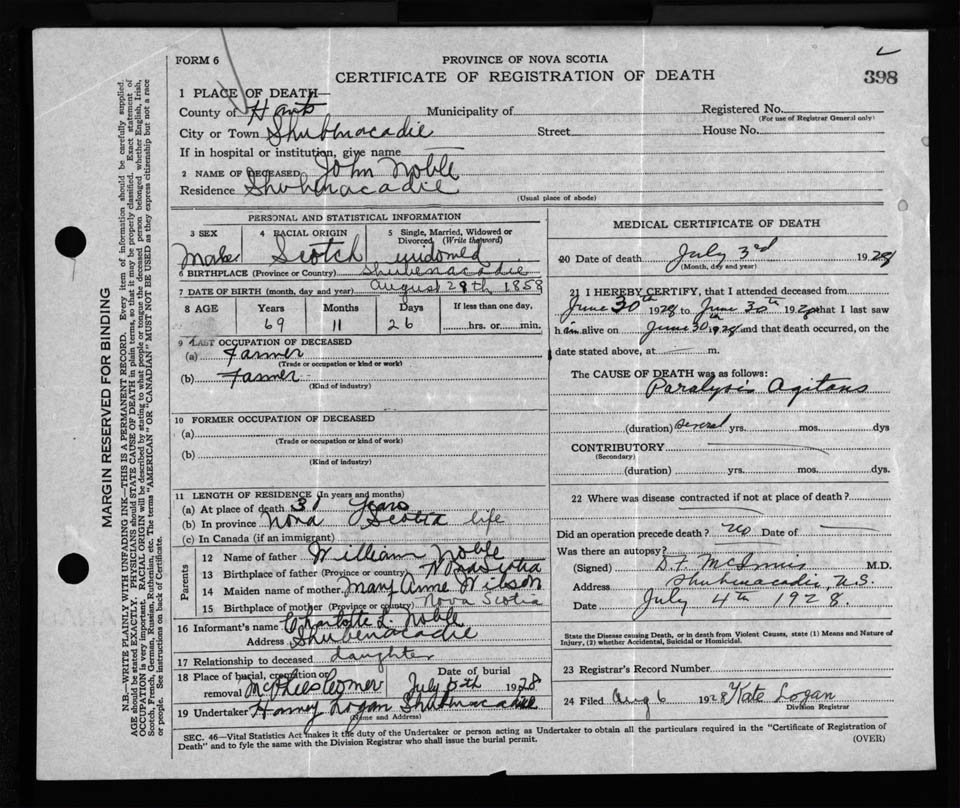 FORM 6
PROVINCE OF NOVA SCOTIA
CERTIFICATE OF REGISTRATION OF DEATH
398
1 PLACE OF DEATH—
County of Hants Municipality of Registered No.
(For use of Registrar General only)
City or Town Shubenacadie Street House No.
If in hospital or institution, give name
2 NAME OF DECEASED John Noble
Residence Shubenacadie
(Usual place of abode)
PERSONAL AND STATISTICAL INFORMATION
3 SEX 4 RACIAL ORIGIN 5 Single, Married, Widowed or Divorced, (Write the word)
Scotch widowed
6 BIRTHPLACE (Province or Country) Shubenacadie
7 DATE OF BIRTH (month, day and year) August 28th 1858
8 AGE Years Months Days If less than one day,
69 11 26 hrs. or min.
9 LAST OCCUPATION OF DECEASED
(a) Farmer
(Trade or occupation or kind or work)
(b) Farmer
(Kind of industry)
10 FORMER OCCUPATION OF DECEASED
(a)
(Trade or occupation or kind of work)
(b)
(Kind of industry)
11 LENGTH OF RESIDENCE (In years and months)
(a) At place of death 31 years
(b) In province Nova Scotia life
(c) In Canada (if an immigrant)
Parents
12 Name of father William Noble
13 Birthplace of father (Province or country) N Scotia
14 Maiden name of mother Mary Anne Wilson
15 Birthplace of mother (Province or country) Nova Scotia
16 Informant's name Charlotte L. Noble
Address Shubenacadie
17 Relationship to deceased daughter
18 Place of burial, cremation or removal Date of burial July 5th 1928
19 Undertaker Harvey Logan Shubenacadie
(Name and Address)
MEDICAL CERTIFICATE OF DEATH
20 Date of death July 3rd 1928
(Month, day and year)
21 I HEREBY CERTIFY, that I attended deceased from
June 30th 1928 to June 30th 1928 that I last saw
h im alive on June 30th 1928 and that death occurred, on the
date stated above, at m.
The CAUSE OF DEATH was as follows:
Paralysis Agitans
(duration) several yrs. mos. dys
CONTRIBUTORY
(Secondary)
(duration) yrs. mos. dys.
22 Where was disease contracted if not at place of death?
Did an operation precede death? no Date of
Was there an autopsy?
(Signed) D.F. McInnis M.D.
Address Shubenacadie N.S.
Date July 4th 1928.
State the Disease causing Death, or in death from Violent Causes, state (1) Means and Nature of
Injury, (2) whether Accidental, Suicidal or Homicidal.
23 Registrar's Record Number
24 Filed Aug 6 1928 Kate Logan
Division Registrar
SEC. 46—Vital Statistics Act makes it the duty of the Undertaker or person acting as Undertaker to obtain all the particulars required in the "Certificate of Registration of
Death" and to fyle the same with the Division Registrar who shall issue the burial permit.
(OVER)
MARGIN RESERVED FOR BINDING
N.B.—WRITE PLAINLY WITH UNFADING INK—THIS IS A PERMANENT RECORD. Every item of information should be carefully supplied.
AGE should be stated EXACTLY. PHYSICIANS should STATE CAUSE OF DEATH in plain terms, so that it may be properly classified. Exact statement of
OCCUPATION is very important. RACIAL ORIGIN will be described by stating to what people or tongue the deceased person belonged whether English, Irish,
Scotch, French, German, Russian, Ruthenian, etc. The terms "AMERICAN" or "CANADIAN" MUST NOT BE USED as they express citizenship but not a race
or people. See instructions on back of Certificate.